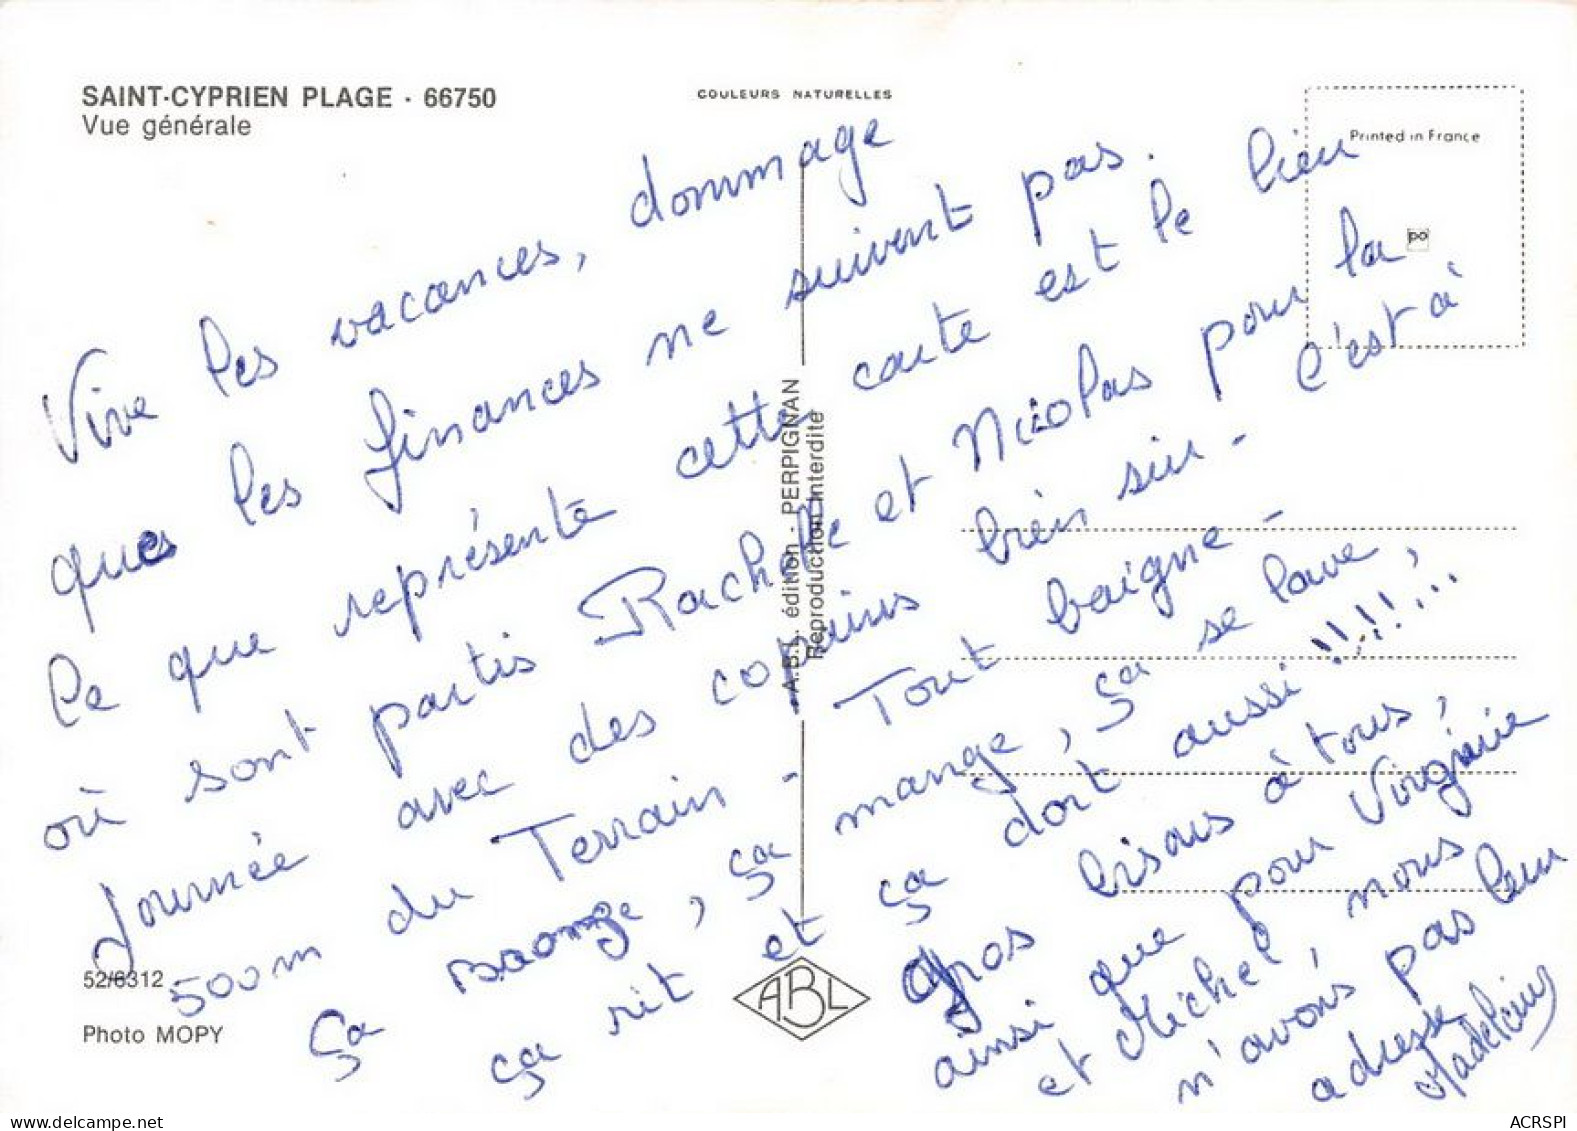 SAINT-CYPRIEN PLAGE · 66750
Vue générale
COULEURS NATURELLES
Printed in France
po
Vive les vacances, dommage
que les finances ne suivent pas.
Ce que représente cette carte est le lieu
où sont partis Rachelle et Nicolas pour la
journée avec des copains bien sur - c'est à
500m du Terrain - Tout baigne -
ça bronze, ça mange, ça se lave,
ça rit et ça dort aussi !!!!...
Gros bisous à tous,
ainsi que pour Virginie
et Michel, nous
n'avons pas leur
adresse
A.B.L. édition - PERPIGNAN
Reproduction interdite
52/6312
Photo MOPY
ABL
ACRSPI